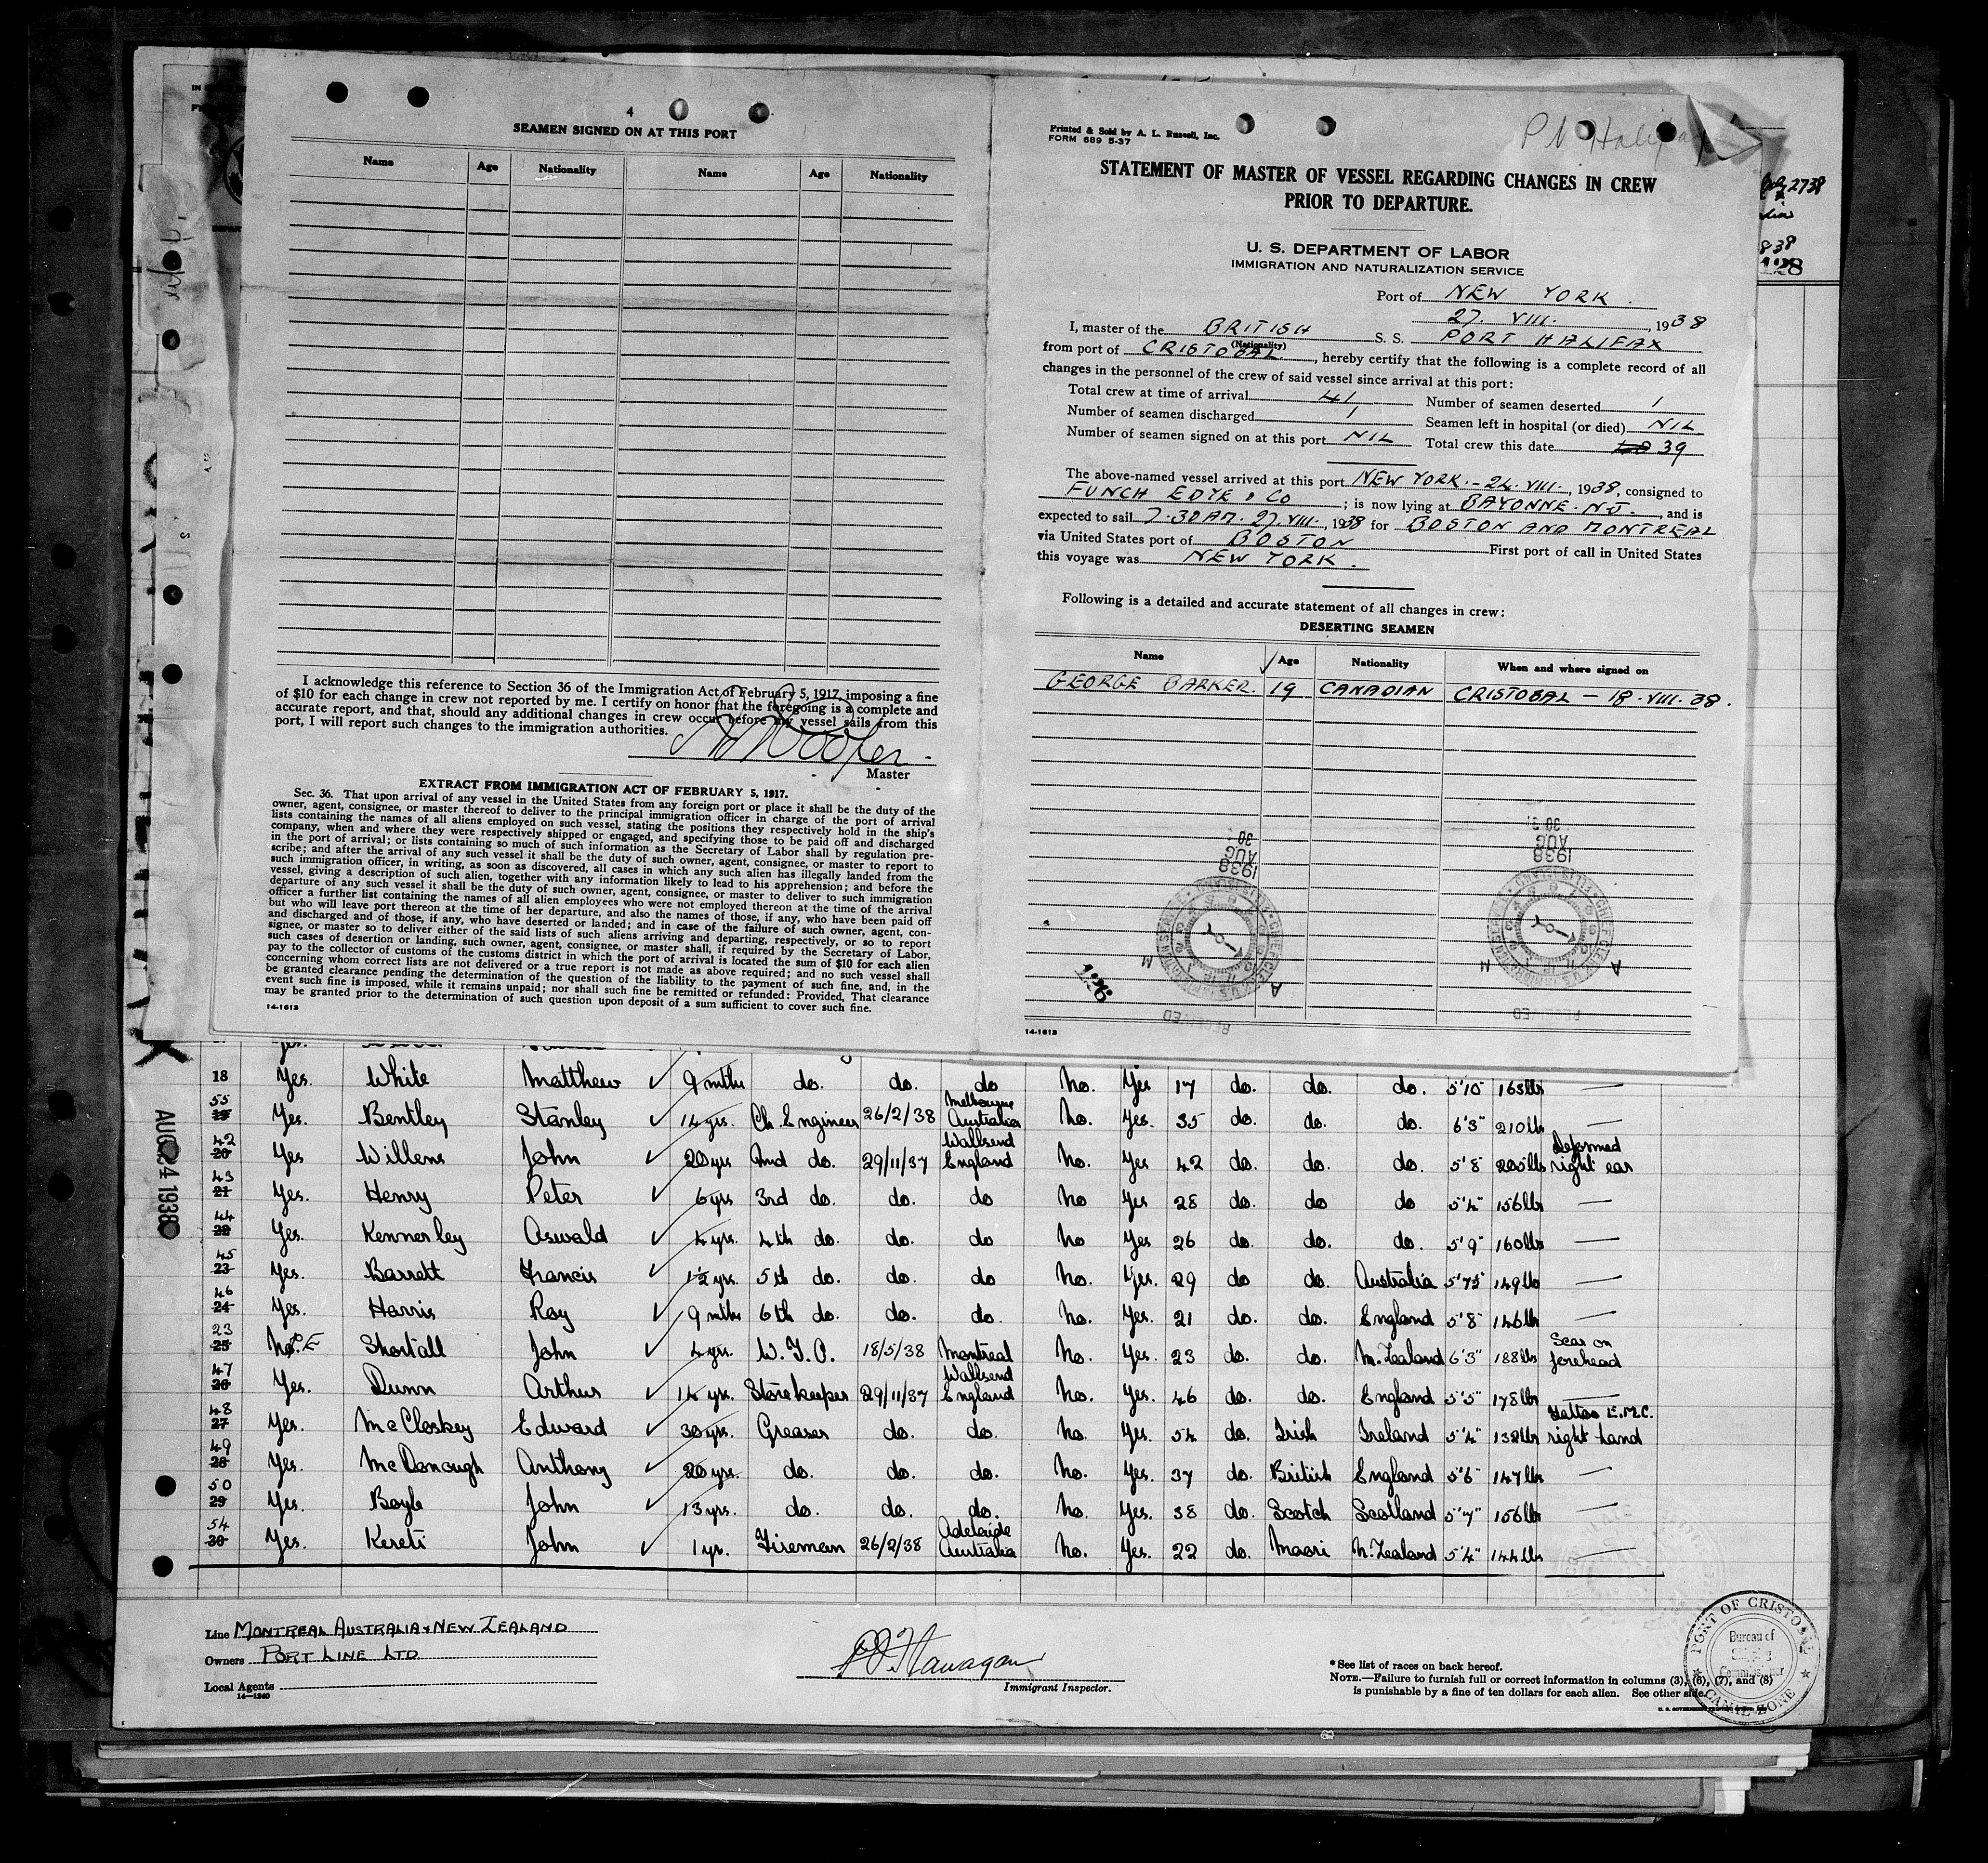 4
SEAMEN SIGNED ON AT THIS PORT
Name Age Nationality Name Age Nationality
I acknowledge this reference to Section 36 of the Immigration Act of February 5, 1917, imposing a fine
of $10 for each change in crew not reported by me. I certify on honor that the foregoing is a complete and
accurate report, and that, should any additional changes in crew occur before my vessel sails from this
port, I will report such changes to the immigration authorities.
Master
EXTRACT FROM IMMIGRATION ACT OF FEBRUARY 5, 1917.
Sec. 36. That upon arrival of any vessel in the United States from any foreign port or place it shall be the duty of the
owner, agent, consignee, or master thereof to deliver to the principal immigration officer in charge of the port of arrival
lists containing the names of all aliens employed on such vessel, stating the positions they respectively hold in the ship's
company, when and where they were respectively shipped or engaged, and specifying those to be paid off and discharged
in the port of arrival; or lists containing so much of such information as the Secretary of Labor shall by regulation pre-
scribe; and after the arrival of any such vessel it shall be the duty of such owner, agent, consignee, or master to report to
such immigration officer, in writing, as soon as discovered, all cases in which any such alien has illegally landed from the
vessel, giving a description of such alien, together with any information likely to lead to his apprehension; and before the
departure of any such vessel it shall be the duty of such owner, agent, consignee, or master to deliver to such immigration
officer a further list containing the names of all alien employees who were not employed thereon at the time of the arrival
but who will leave port thereon at the time of her departure, and also the names of those, if any, who have been paid off
and discharged and of those, if any, who have deserted or landed; and in case of the failure of such owner, agent, con-
signee, or master so to deliver either of the said lists of such aliens arriving and departing, respectively, or so to report
such cases of desertion or landing, such owner, agent, consignee, or master shall, if required by the Secretary of Labor,
pay to the collector of customs of the customs district in which the port of arrival is located the sum of $10 for each alien
concerning whom correct lists are not delivered or a true report is not made as above required; and no such vessel shall
be granted clearance pending the determination of the question of the liability to the payment of such fine, and, in the
event such fine is imposed, while it remains unpaid; nor shall such fine be remitted or refunded: Provided, That clearance
may be granted prior to the determination of such question upon deposit of a sum sufficient to cover such fine.
14-1613
Printed & Sold by A. L. Russell, Inc.
FORM 689 5-37
Halifax
STATEMENT OF MASTER OF VESSEL REGARDING CHANGES IN CREW
PRIOR TO DEPARTURE.
U. S. DEPARTMENT OF LABOR
IMMIGRATION AND NATURALIZATION SERVICE
Port of NEW YORK.
27. VIII., 1938
I, master of the BRITISH S. S. PORT HALIFAX
(Nationality)
from port of CRISTOBAL, hereby certify that the following is a complete record of all
changes in the personnel of the crew of said vessel since arrival at this port:
Total crew at time of arrival 41 Number of seamen deserted 1
Number of seamen discharged 1 Seamen left in hospital (or died) NIL
Number of seamen signed on at this port NIL Total crew this date 39
The above-named vessel arrived at this port NEW YORK. - 24. VIII., 1938, consigned to
FUNCH EDYE & CO; is now lying at BAYONNE. N.J., and is
expected to sail 7.30 AM. 27. VIII., 1938 for BOSTON AND MONTREAL
via United States port of BOSTON First port of call in United States
this voyage was NEW YORK.
Following is a detailed and accurate statement of all changes in crew:
DESERTING SEAMEN
Name Age Nationality When and where signed on
GEORGE BARKER. 19 CANADIAN CRISTOBAL — 18. VIII. 38.
30
AUG
1938
RECEIVED
30
AUG
1938
RECEIVED
14-1613
18 Yes. White Matthew ✓ 9 mths do. do. do No. Yes 17 do. do. do. 5'10" 163lbs —
55 19 Yes. Bentley Stanley ✓ 14 yrs. Ch. Engineer 26/2/38 Melbourne Australia No. Yes. 35 do. do. do. 6'3" 210lb —
42 20 Yes Willens John ✓ 20 yrs 2nd do. 29/11/37 Wallsend England No. Yes 42 do. do. do. 5'8" 205lbs Deformed right ear
43 21 Yes. Henry Peter ✓ 6 yrs 3rd do. do. do No Yes 28 do. do do 5'4" 156lbs —
44 22 Yes. Kennerley Oswald ✓ 4 yrs. 4th do. do. do No Yes 26 do. do. do. 5'9" 160lbs —
45 23 Yes. Barrett Francis ✓ 1½ yrs. 5th do. do. do No. Yes. 29 do do. Australia 149lbs —
46 24 Yes. Harris Roy ✓ 9 mths 6th do. do. do. No. Yes. 21 do. do. England 5'8" 146lbs —
23 25 Shortall John ✓ 4 yrs. W.T.O. 18/5/38 Montreal No. Yes. 23 do. do. N. Zealand 6'3" 188lbs Scar on forehead
47 26 Yes. Dunn Arthur ✓ 14 yrs. Storekeeper 29/11/37 Wallsend England No. Yes. 46 do. do. England 5'5" 178lbs —
48 27 Yes. McCloskey Edward ✓ 30 yrs. Greaser do. do. No. Yes. 54 do. Irish Ireland 5'4" 132lbs Tattoo E.M.C. right hand
49 28 Yes. McDonough Anthony ✓ 20 yrs. do. do. do. No. Yes. 37 do. British England 5'6" 147lbs —
50 29 Yes. Boyle John ✓ 13 yrs. do. do. do. No. Yes. 38 do. Scotch Scotland 5'7" 156lbs —
54 30 Yes. Kereti John ✓ 1 yr. Fireman 26/2/38 Adelaide Australia No. Yes. 22 do. Maori N. Zealand 5'4" 144lbs —
AUG 24 1938
Line MONTREAL AUSTRALIA & NEW ZEALAND
Owners PORT LINE LTD
Local Agents
14—1240
Immigrant Inspector.
*See list of races on back hereof.
NOTE.—Failure to furnish full or correct information in columns (3), (6), (7), and (8)
is punishable by a fine of ten dollars for each alien. See other side.
PORT OF CRISTOBAL
Bureau of
CANAL ZONE